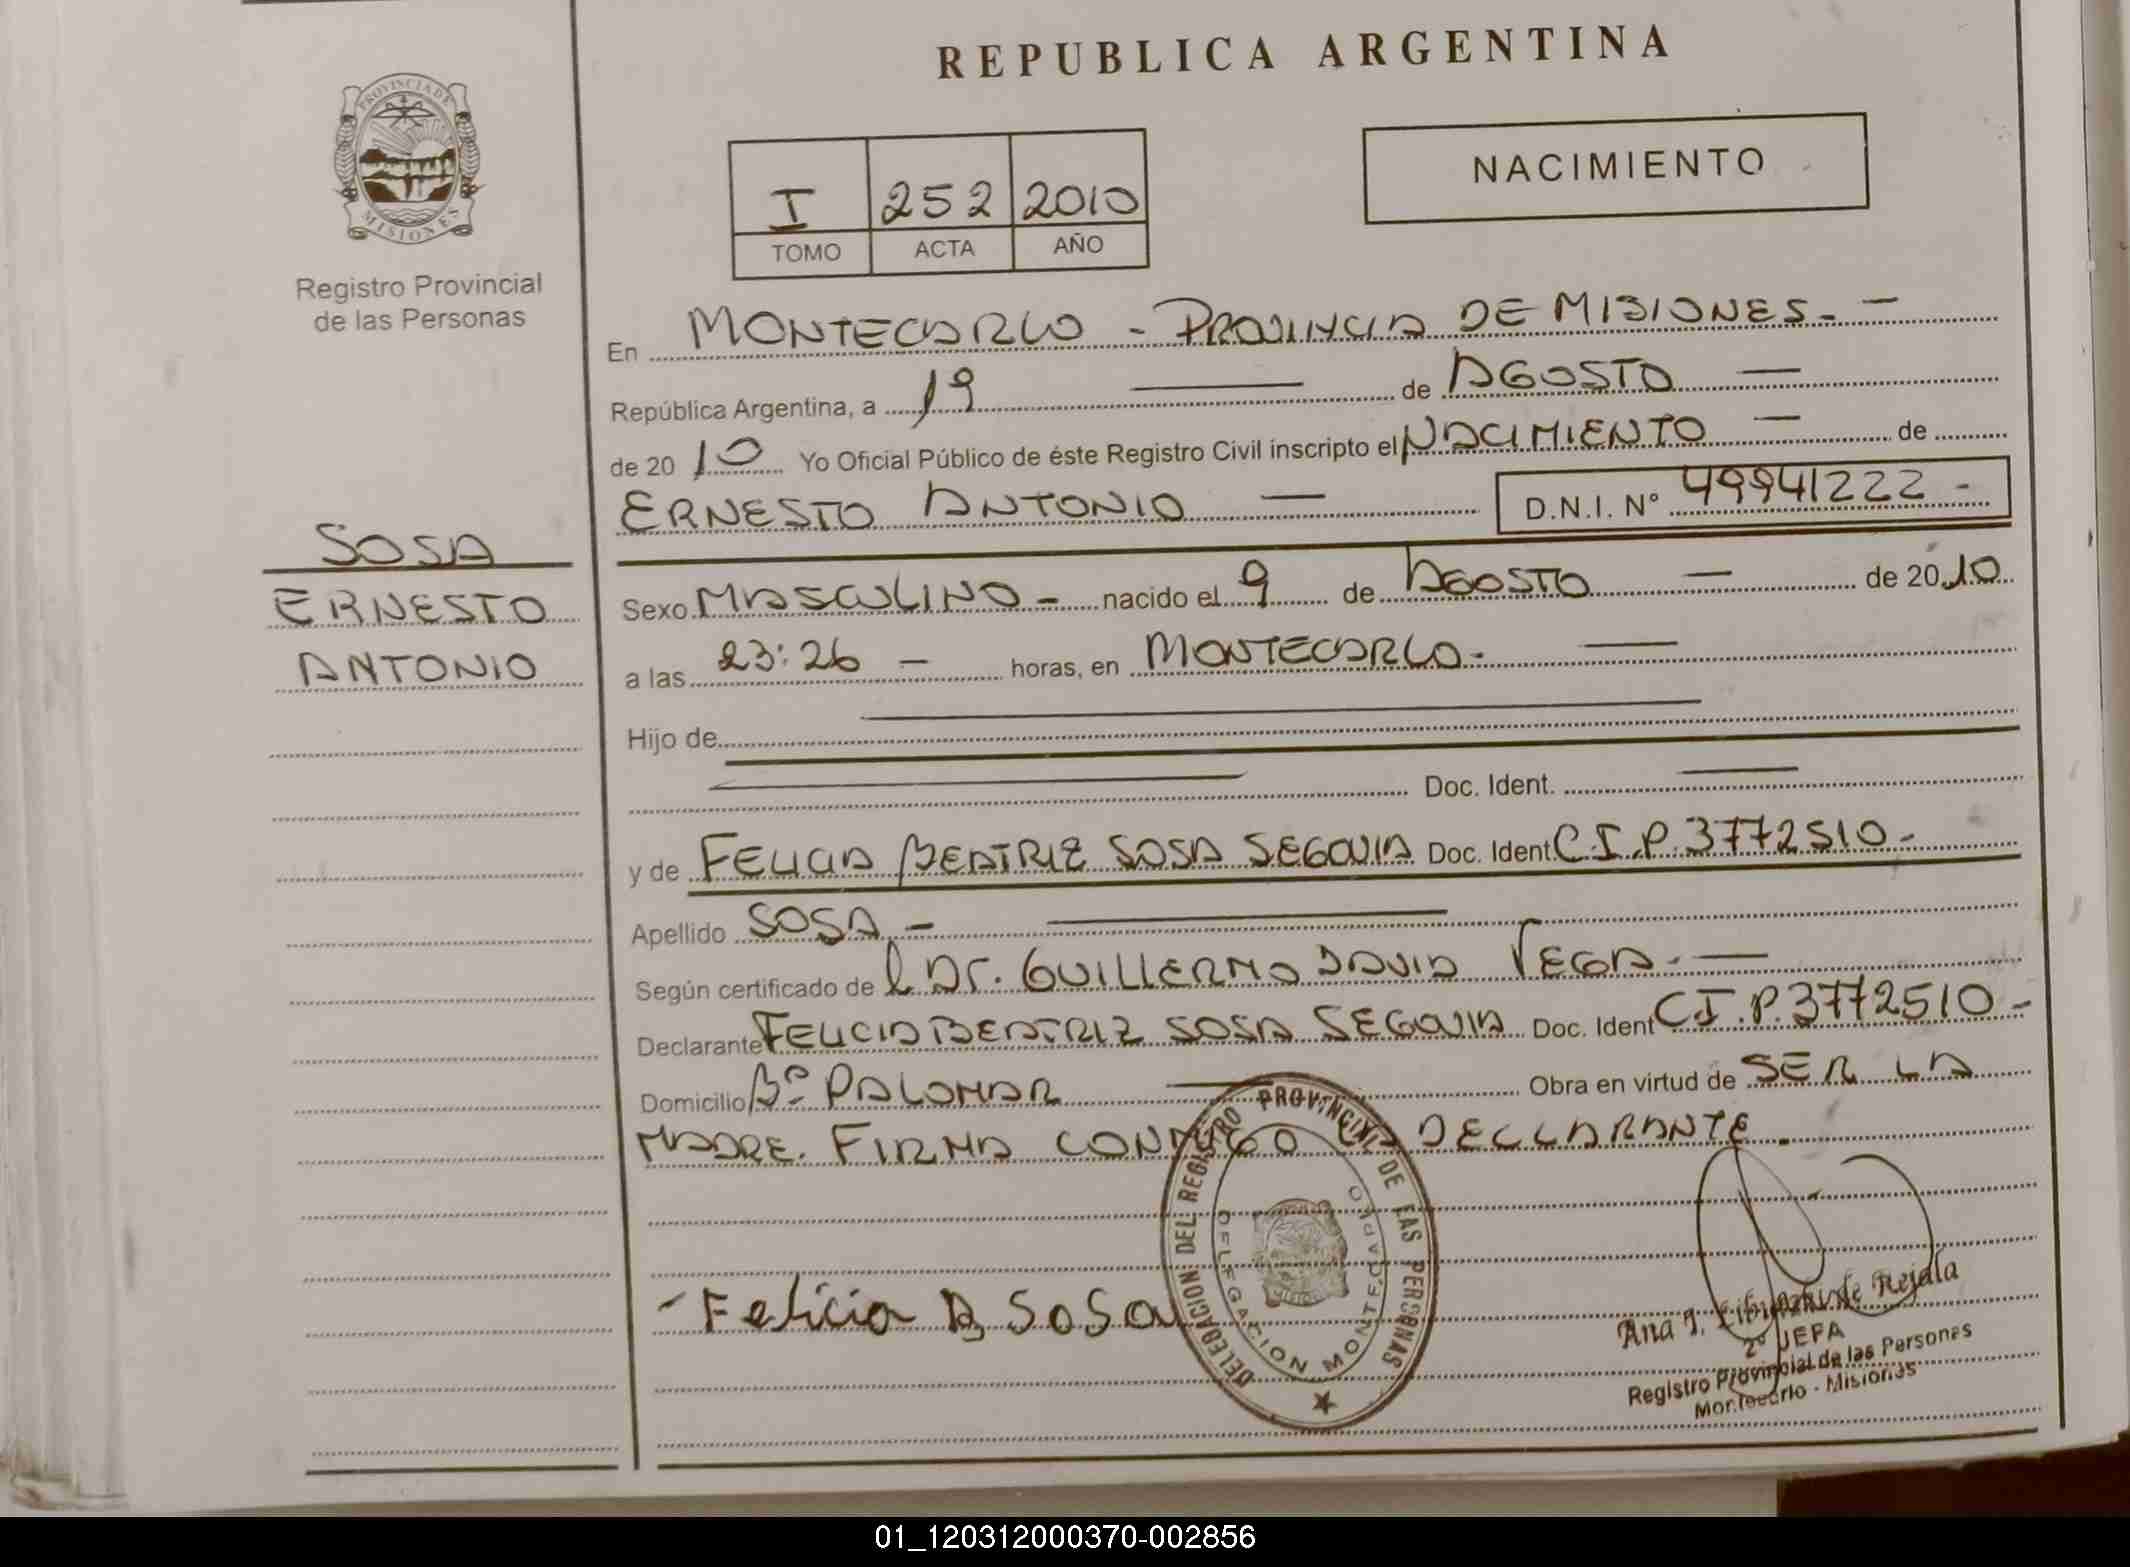 REPUBLICA ARGENTINA
PROVINCIA DE
MISIONES
Registro Provincial
de las Personas
I 252 2010
TOMO ACTA AÑO
NACIMIENTO
En MONTECARLO - PROVINCIA DE MISIONES. -
República Argentina, a 19 de AGOSTO
de 20 10 Yo Oficial Público de éste Registro Civil inscripto el NACIMIENTO de
ERNESTO ANTONIO D.N.I. N° 49941222 -
SOSA
ERNESTO
ANTONIO
Sexo MASCULINO - nacido el 9 de AGOSTO de 20 10
a las 23:26 - horas, en MONTECARLO -
Hijo de
Doc. Ident.
y de FELICIA BEATRIZ SOSA SEGOVIA Doc. Ident C.I.P. 3772510 -
Apellido SOSA -
Según certificado de l Dr. GUILLERMO DAVID VEGA. -
Declarante FELICIA BEATRIZ SOSA SEGOVIA Doc. Ident C.I.P. 3772510 -
Domicilio B° PALOMAR Obra en virtud de SER LA
MADRE. FIRMA CONMIGO LA DECLARANTE.
DELEGACION DEL REGISTRO PROVINCIAL DE LAS PERSONAS
DELEGACION MONTECARLO
- Felicia B SoSa
Ana de Rejala
2° JEFA
Registro Provincial de las Personas
Montecarlo - Misiones
01_120312000370-002856